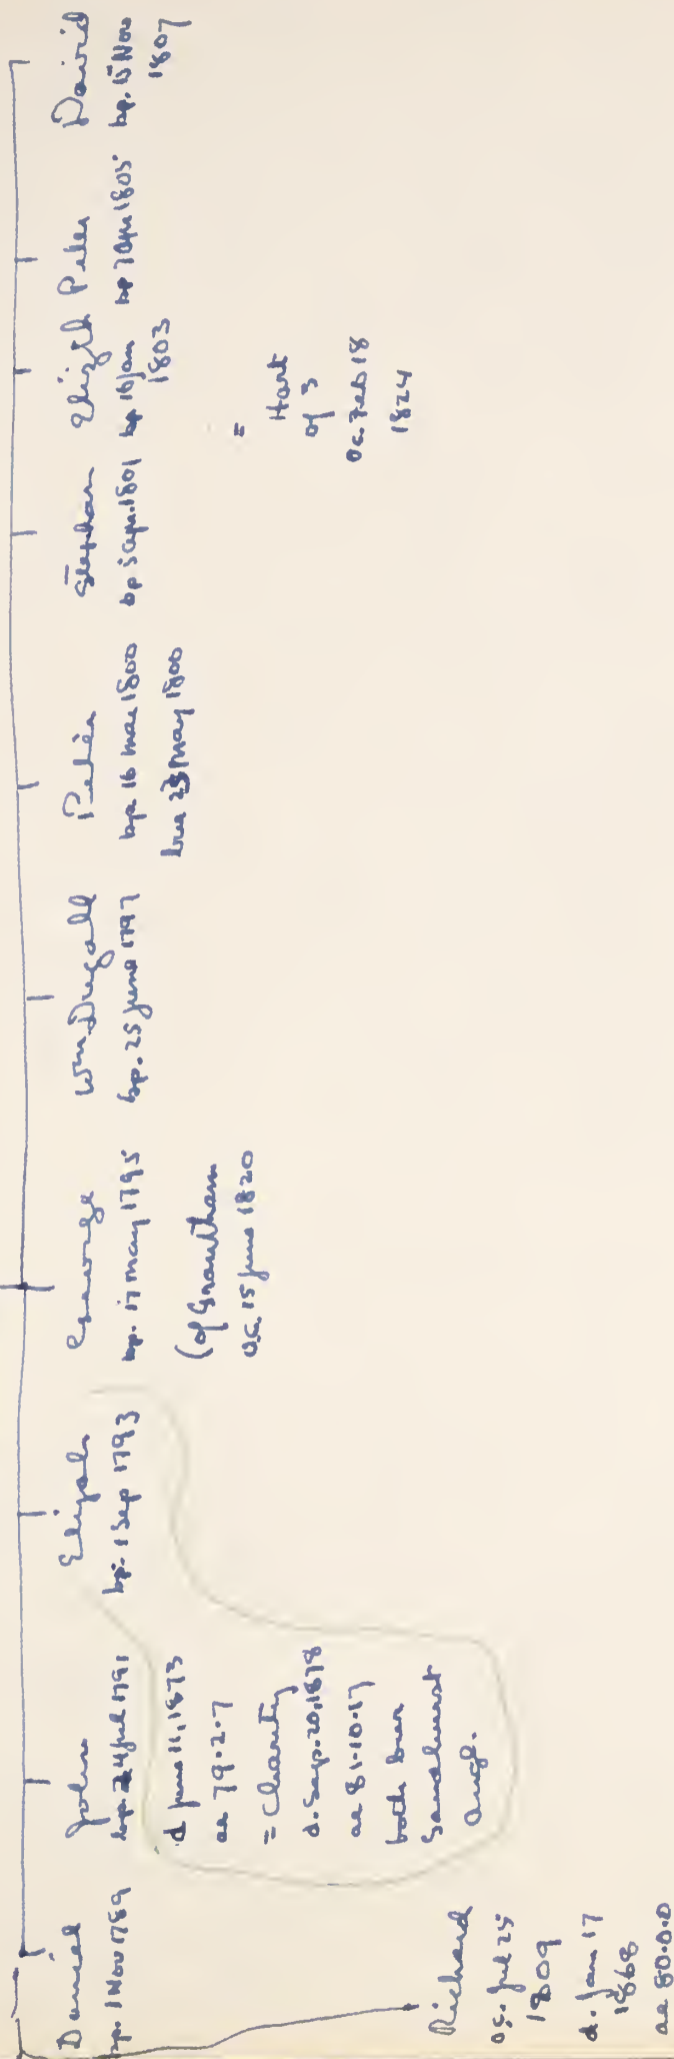 Daniel
bp. 1 Nov 1789
Richard
O.C. Jul 25
1809
d. Jan 17
1868
ae 80.0.0
John
bp. 24 Jul 1791
d June 11, 1873
ae 79.2.7
= Charity
d. Sep. 20, 1878
ae 81.10.17
both bur
Sandhurst
Angl.
Elijah
bp. 1 Sep 1793
George
bp. 17 May 1795
(of Grantham
O.C. 15 June 1820
Wm Dugall
bp. 25 June 1797
Peter
bp. 16 Mar 1800
bur 23 May 1800
Stephen
bp 5 Apr. 1801
Elizth
bp. 16 Jan
1803
=
Hart
of S
O.C. Feb 18
1824
Peter
bp 7 Apr 1805
David
bp. 15 Nov
1807